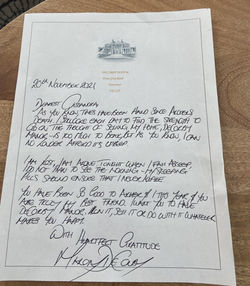 20th November 2021
Dearest Cassandra
As you know times have been hard since Archer's
death. I struggle each day to find the strength to
go on. The thought of selling my home, DeCourcy
Manor - is too much to bear. But as you know, I can
no longer afford its upkeep.
I am lost, I am alone. Tonight when I fall asleep,
I do not plan to see the morning - my sleeping
pills should ensure that I never awake.
You have been so good to Archer & I this year & you
are truly my best friend. I want you to have
DeCourcy Manor. Run it, sell it or do with it whatever
makes you happy.
With Heartfelt Gratitude
DeCourcy